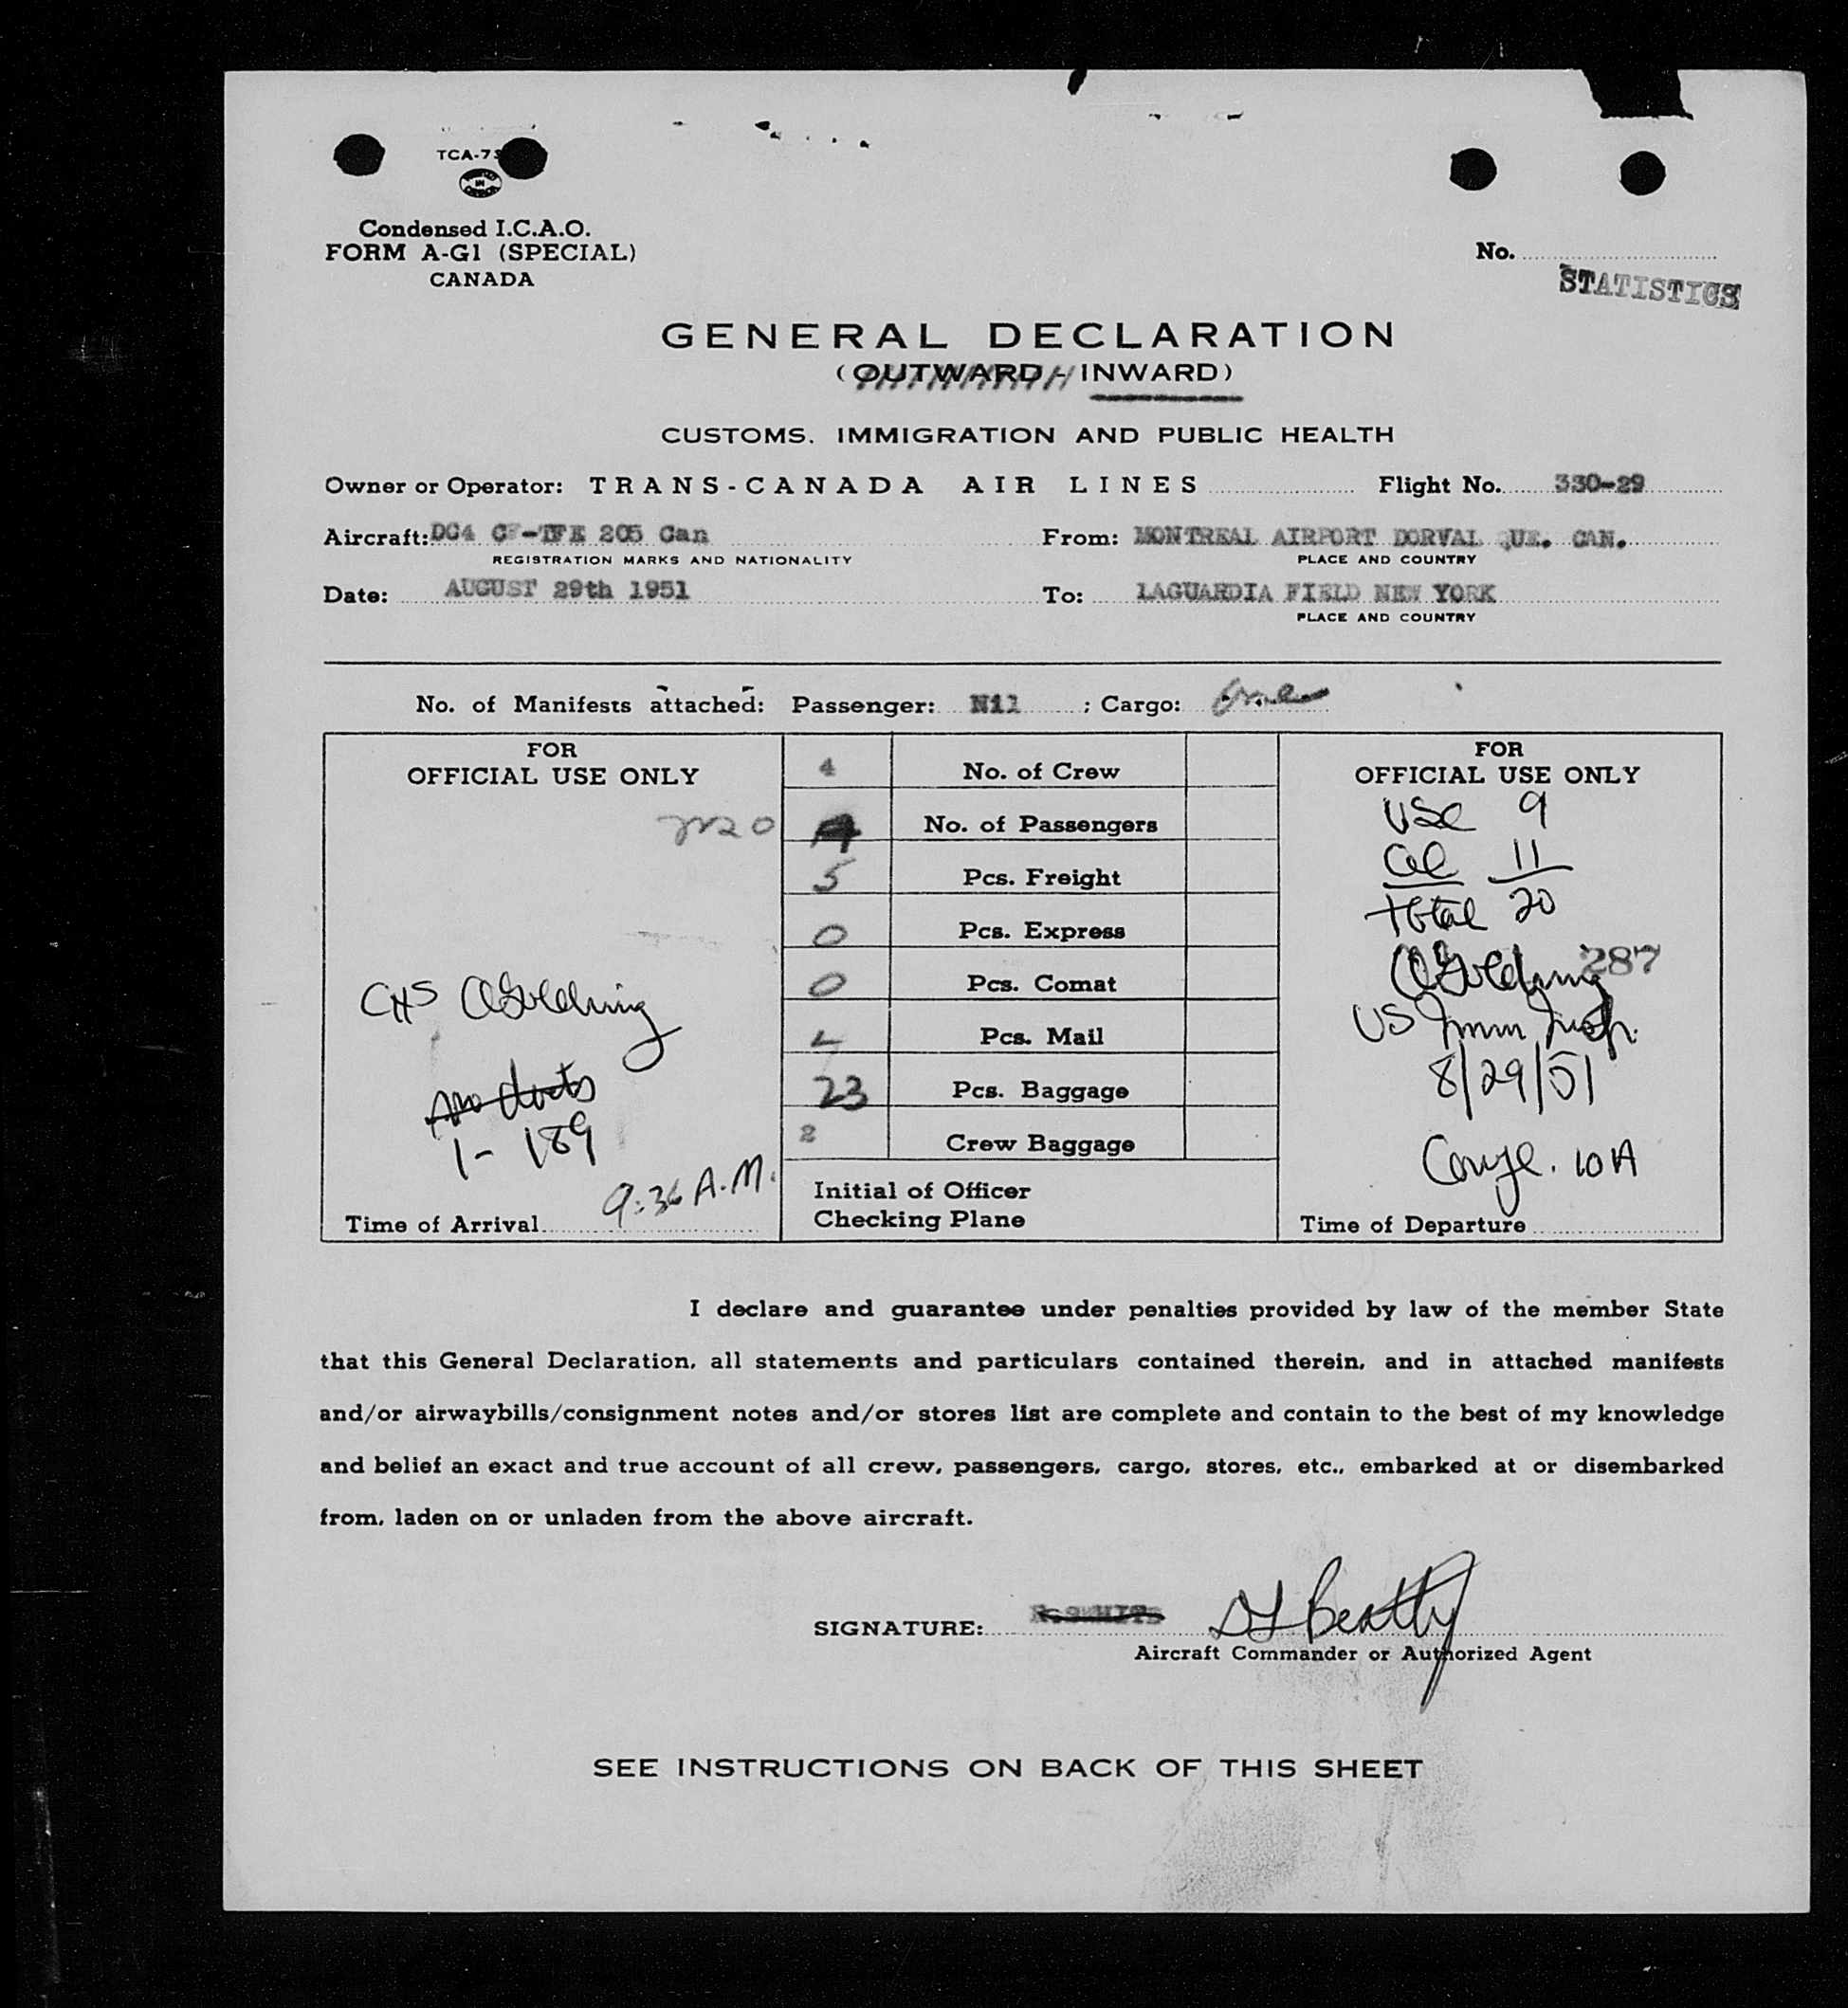 TCA-73
Condensed I.C.A.O.
FORM A-G1 (SPECIAL)
CANADA
No.
STATISTICS
GENERAL DECLARATION
(OUTWARD - INWARD)
CUSTOMS, IMMIGRATION AND PUBLIC HEALTH
Owner or Operator: TRANS-CANADA AIR LINES Flight No. 330-29
Aircraft: DC4 CF-TFE 205 Can From: MONTREAL AIRPORT DORVAL QUE. CAN.
REGISTRATION MARKS AND NATIONALITY PLACE AND COUNTRY
Date: AUGUST 29th 1951 To: LAGUARDIA FIELD NEW YORK
PLACE AND COUNTRY
No. of Manifests attached: Passenger: Nil ; Cargo: One
FOR
OFFICIAL USE ONLY
CHS CGolding
1- 189
9:36 A.M.
Time of Arrival
4 No. of Crew
No. of Passengers
5 Pcs. Freight
0 Pcs. Express
0 Pcs. Comat
Pcs. Mail
23 Pcs. Baggage
2 Crew Baggage
Initial of Officer
Checking Plane
FOR
OFFICIAL USE ONLY
USC 9
11
Total 20
CGolding 287
US Imm Insp.
8/29/51
10A
Time of Departure
I declare and guarantee under penalties provided by law of the member State
that this General Declaration, all statements and particulars contained therein, and in attached manifests
and/or airwaybills/consignment notes and/or stores list are complete and contain to the best of my knowledge
and belief an exact and true account of all crew, passengers, cargo, stores, etc., embarked at or disembarked
from, laden on or unladen from the above aircraft.
SIGNATURE: Beatty
Aircraft Commander or Authorized Agent
SEE INSTRUCTIONS ON BACK OF THIS SHEET